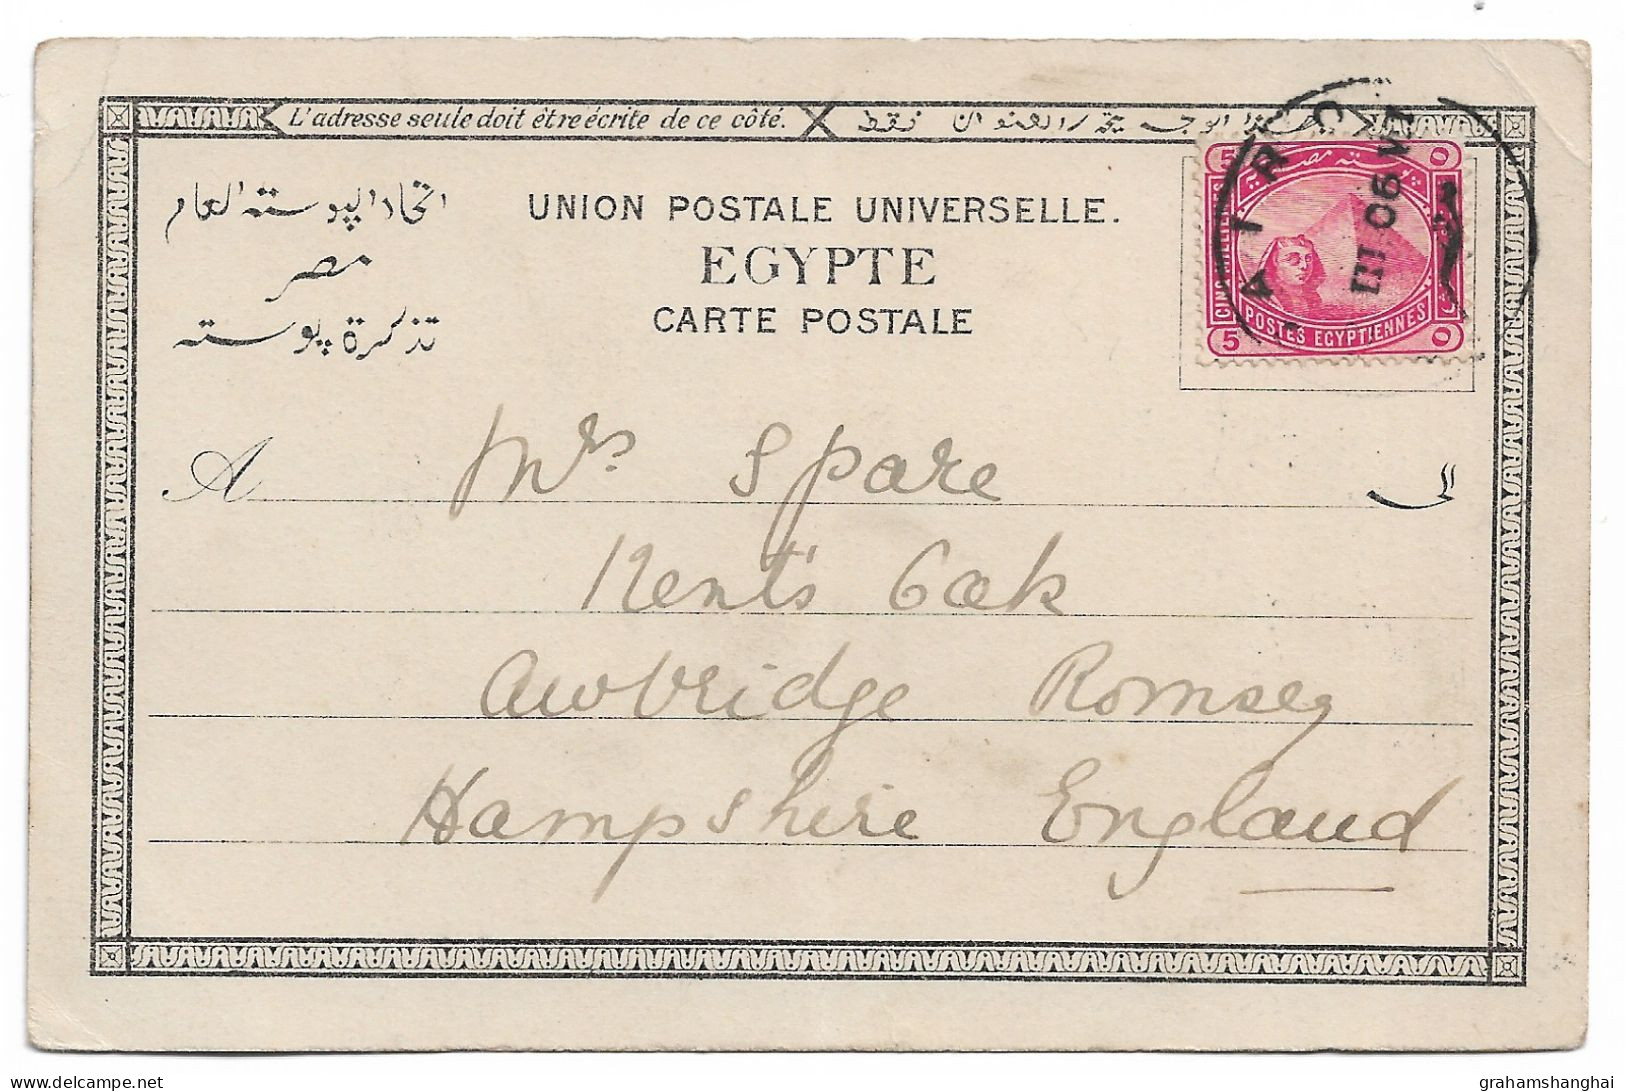 L'adresse seule doit être écrite de ce côté.
اتحاد البوسته العام
مصر
تذكرة بوسته
UNION POSTALE UNIVERSELLE.
EGYPTE
CARTE POSTALE
CAIRO
III 06
5 5
CINQ MILLIEMES
POSTES EGYPTIENNES
A Mrs Spare الى
Kent's Oak
Awbridge Romsey
Hampshire England
delcampe.net
grahamshanghai